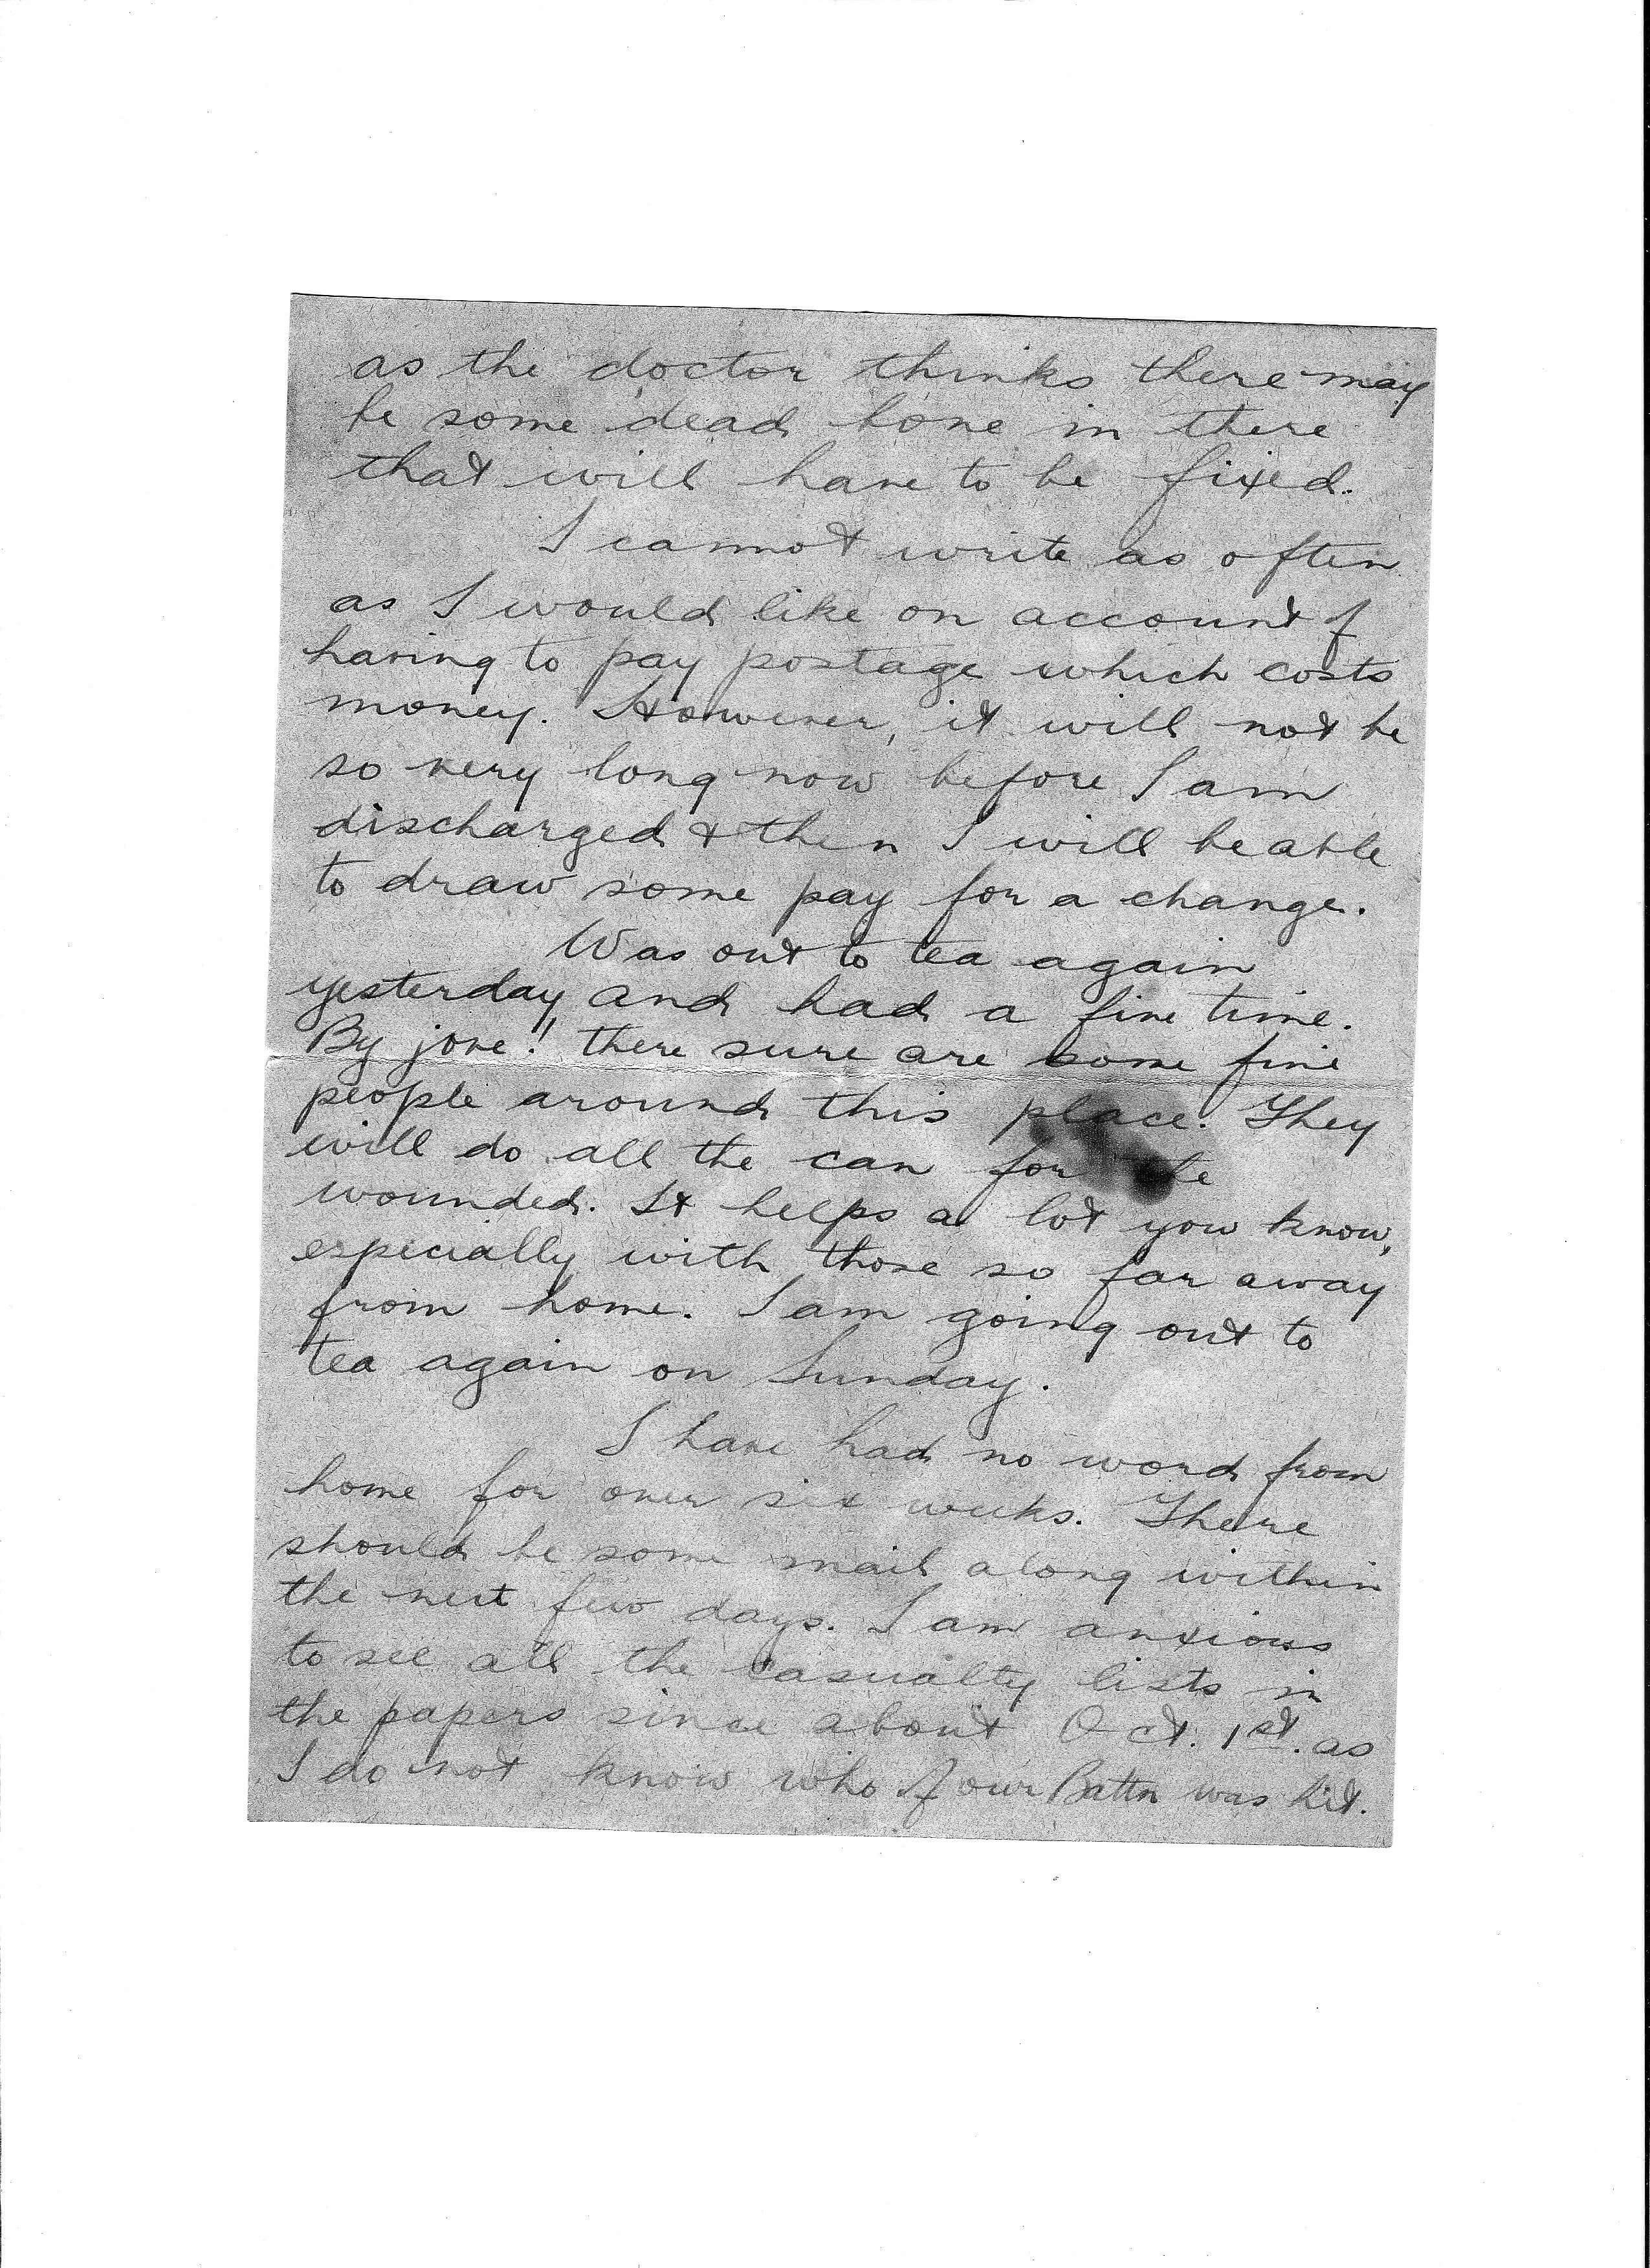 as the doctor thinks there may
be some dead bone in there
that will have to be fixed.
I cannot write as often
as I would like on account of
having to pay postage which costs
money. However, it will not be
so very long now before I am
discharged & then I will be able
to draw some pay for a change.
Was out to tea again
yesterday and had a fine time.
By jove! there sure are some fine
people around this place. They
will do all the can for te
wounded. It helps a lot you know,
especially with those so far away
from home. I am going out to
tea again on Sunday.
I have had no word from
home for over six weeks. There
should be some mail along within
the next few days. I am anxious
to see all the casualty lists in
the papers since about Oct. 1st. as
I do not know who of our Battn was hit.